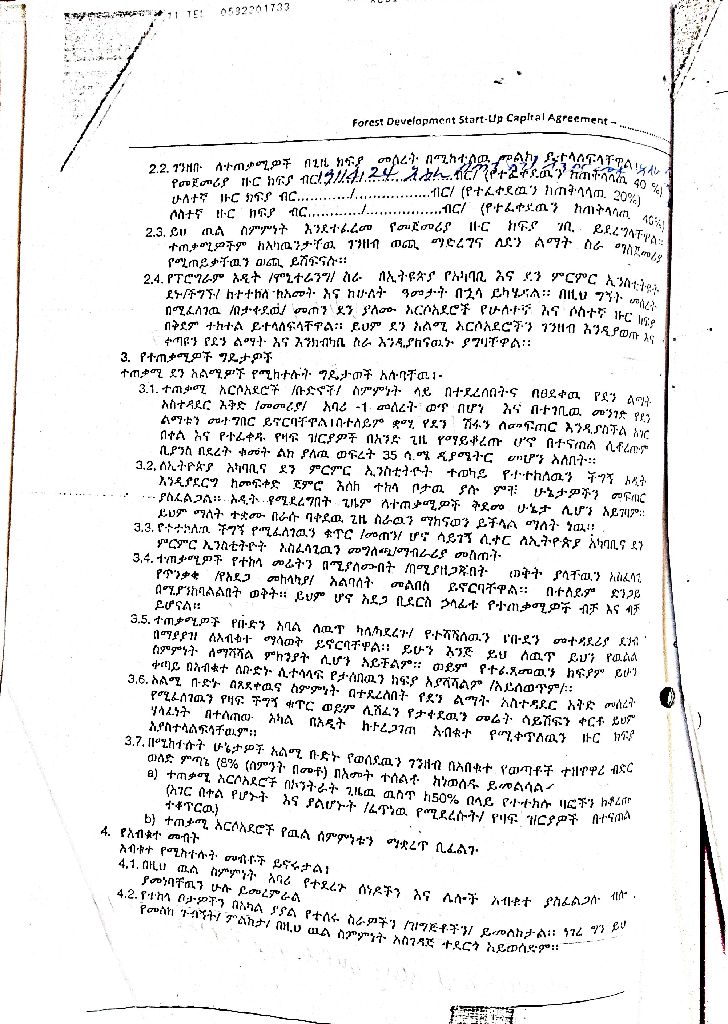 TEL 0582201733
Forest Development Start-Up Capital Agreement –
2.2. ገንዘቡ ለተጠቃሚዎች በጊዜ ክፍያ መሰረት በሚከተለዉ መልኩ ይተላለፍላቸዋል፤
የመጀመሪያ ዙር ክፍያ ብር (የተፈቀደዉን ከጠቅላላዉ 40 %)
ሁለተኛ ዙር ክፍያ ብር............/..................ብር/ (የተፈቀደዉን ከጠቅላላዉ 20%)
ሶስተኛ ዙር ክፍያ ብር............/..................ብር/ (የተፈቀደዉን ከጠቅላላዉ 40%)
2.3. ይህ ዉል ስምምነት እንደተፈረመ የመጀመሪያ ዙር ክፍያ ገቢ ይደረግላቸዋል።
ተጠቃሚዎችም ከአካዉንታቸዉ ገንዘብ ወጪ ማድረግና ለደን ልማት ስራ ማስጀመሪያ
የሚጠይቃቸዉን ወጪ ይሸፍናሉ።
2.4. የፕሮግራም አዲት /ሞኒተሪንግ/ ስራ በኢትዮጵያ የአካባቢ እና ደን ምርምር ኢንስቲትዩት
ደኑ/ችግኙ/ ከተተከለ ከአመት እና ከሁለት ዓመታት በኋላ ይካሄዳል። በዚህ ግኝት መሰረት
በሚፈለገዉ /በታቀደዉ/ መጠን ደን ያለሙ አርሶአደሮች የሁለተኛ እና ሶስተኛ ዙር ክፍያ
በቅደም ተከተል ይተላለፍላቸዋል። ይህም ደን አልሚ አርሶአደሮችን ገንዘብ እንዲያወጡ እና
ቀጣዩን የደን ልማት እና እንክብካቤ ስራ እንዲያከናዉኑ ያግዛቸዋል።
3. የተጠቃሚዎች ግዴታዎች
ተጠቃሚ ደን አልሚዎች የሚከተሉት ግዴታወች አሉባቸዉ፡-
3.1. ተጠቃሚ አርሶአደሮች /ቡድኖች/ ስምምነት ላይ በተደረሰበትና በፀደቀዉ የደን ልማት
አስተዳደር እቅድ /መመሪያ/ አባሪ -1 መሰረት ወጥ በሆነ እና በተገቢዉ መንገድ የደን
ልማቱን መተግበር ይኖርባቸዋል፤በተለይም ቋሚ የደን ሽፋን ለመፍጠር እንዲያስችል አገር
በቀል እና የተፈቀዱ የዛፍ ዝርያዎች በአንድ ጊዜ የማይቆረጡ ሆኖ በተናጠል ሲቆረጡም
ቢያንስ በደረት ቁመት ልክ ያለ ወፍረት 35 ሳ.ሜ ዲያሜትር መሆን አለበት።
3.2. ለኢትዮጵያ አካባቢና ደን ምርምር ኢንስቲትዮት ተወካይ የተተከለዉን ችግኝ አዲት
እንዲያደርግ ከመፍቀድ ጀምሮ እስከ ተከላ ቦታዉ ያሉ ምቹ ሁኔታዎችን መፍጠር
ያስፈልጋል። አዲት የሚደረግበት ጊዜም ለተጠቃሚዎች ቅድመ ሁኔታ ሊሆን አይገባም።
ይህም ማለት ተቋሙ በራሱ ባቀደዉ ጊዜ ስራዉን ማከናወን ይችላል ማለት ነዉ።
3.3. የተተከለዉ ችግኝ የሚፈለገዉን ቁጥር /መጠን/ ሆኖ ሳይገኝ ሲቀር ለኢትዮጵያ አካባቢና ደን
ምርምር ኢንስቲትዮት አስፈላጊዉን መግለጫ/ማብራሪያ መስጠት
3.4. ተጠቃሚዎች የተከላ መሬትን በሚያለሙበት /በሚያዘጋጁበት ወቅት ያላቸዉን አስፈላጊ
የጥንቃቄ /የአደጋ መከላከያ/ አልባሳት መልበስ ይኖርባቸዋል። በተለይም ድንጋይ
በሚያንከባልልበት ወቅት። ይህም ሆኖ አደጋ ቢደርስ ኃላፊቱ የተጠቃሚዎች ብቻ እና ብቻ
ይሆናል።
3.5. ተጠቃሚዎች የቡድን አባል ለዉጥ ካለ/ካደረጉ/ የተሻሻለዉን የቡደን መተዳደሪያ ደንብ
በማያያዝ ለአብቁተ ማሳወቅ ይኖርባቸዋል። ይሁን እንጅ ይህ ለዉጥ ይህን የዉልል
ስምምነት ለማሻሻል ምክንያት ሊሆን አይችልም። ወይም የተፈጸመዉን ክፍያም ይሁን
ቀጣይ በአብቁተ ለቡድኑ ሊተላለፍ የታሰበዉን ክፍያ አያሻሽልም /አይለወጥም/።
3.6. አልሚ ቡድኑ በጸደቀዉና ስምምነት በተደረሰበት የደን ልማት አስተዳደር እቅድ መሰረት
የሚፈለገዉን የዛፍ ችግኝ ቁጥር ወይም ሊሸፈን የታቀደዉን መሬት ሳይሸፍን ቀርቶ ይህም
ሃላፊነት በተሰጠዉ አካል በአዲት ከተረጋገጠ አብቁተ የሚቀጥለዉን ዙር ክፍያ
አያስተላልፍላቸዉም።
3.7. በሚከተሉት ሁኔታዎች አልሚ ቡድኑ የወሰደዉን ገንዘብ በአበቁተ የወጣቶች ተዘዋዋሪ ብድር
ወለድ ምጣኔ (8% (ስምንት በመቶ) በአመት ተሰልቶ ከነወለዱ ይመልሳል
a) ተጠቃሚ አርሶአደሮች በኮንትራት ጊዜዉ ዉስጥ ከ50% በላይ የተተከሉ ዛፎችን ከቆረጡ
(አገር በቀል የሆኑት እና ያልሆኑት /ፈጥነዉ የሚደረሱት/ የዛፍ ዝርያዎች በተናጠል
ተቆጥርዉ)
b) ተጠቃሚ አርሶአደሮች የዉል ስምምነቱን ማቋረጥ ቢፈልጉ
4. የአብቁተ መብት
አብቁተ የሚከተሉት መብቶች ይኖሩታል፤
4.1. በዚህ ዉል ስምምነት አባሪ የተደረጉ ሰነዶችን እና ሌሎች አብቁተ ያስፈልጋሉ ብሎ
ያመነባቸዉን ሁሉ ይመረምራል
4.2. የተከላ ቦታዎችን በአካል ያያል የተሰሩ ስራዎችን /ዝግጅቶችን/ ይመለከታል። ነገረ ግን ይህ
የመስክ ጉብኝት/ ምልከታ/ በዚህ ዉል ስምምነት አስገዳጅ ተደርጎ አይወሰድም።